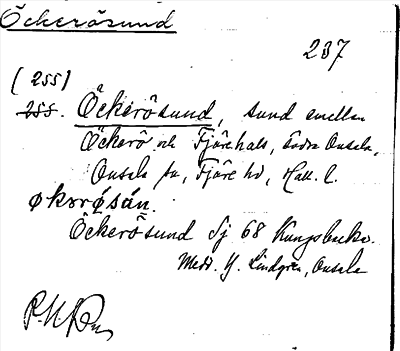 Öckerösund
237
(255)
255. Öckerösund, sund mellan
Öckerö och Fjärehals, södra Onsala,
Onsala sn, Fjäre hd, Hall. l.
økərøsán.
Öckerösund Sj 68 Kungsbacka.
Medd. Y. Lindgren, Onsala